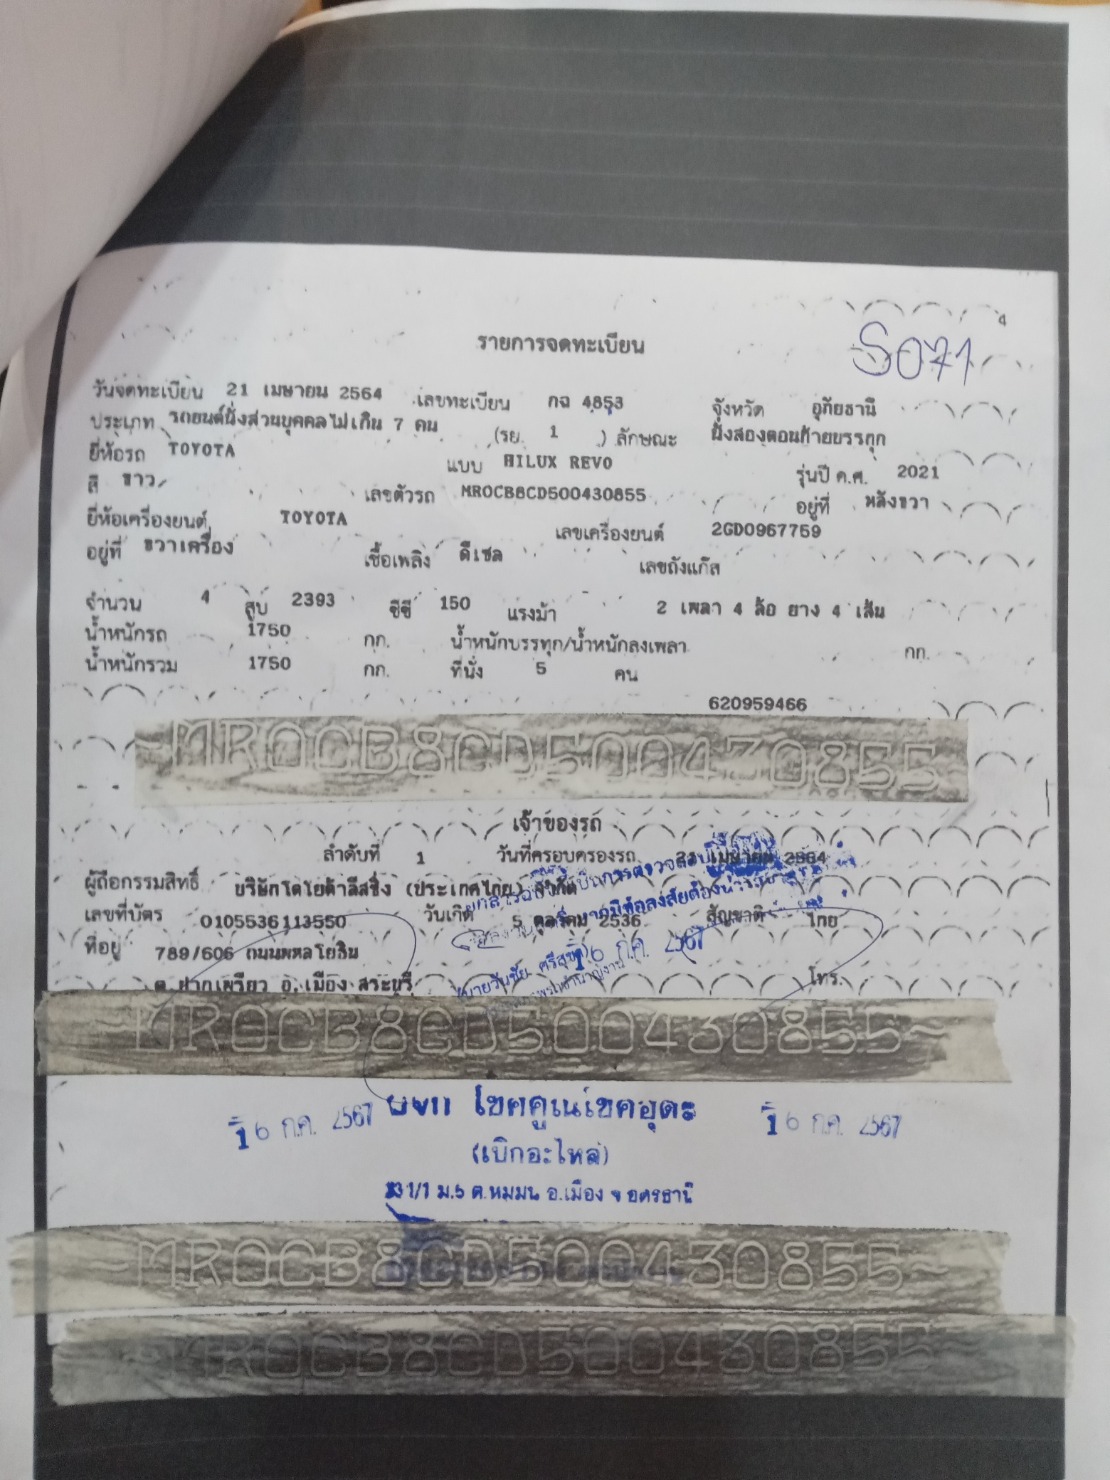 4
รายการจดทะเบียน
S071
วันจดทะเบียน 21 เมษายน 2564 เลขทะเบียน กฉ 4853 จังหวัด อุทัยธานี
ประเภท รถยนต์นั่งส่วนบุคคลไม่เกิน 7 คน (รย. 1 ) ลักษณะ นั่งสองตอนท้ายบรรทุก
ยี่ห้อรถ TOYOTA แบบ HILUX REVO รุ่นปี ค.ศ. 2021
สี ขาว เลขตัวรถ MR0CB8CD500430855 อยู่ที่ หลังขวา
ยี่ห้อเครื่องยนต์ TOYOTA เลขเครื่องยนต์ 2GD0967759
อยู่ที่ ขวาเครื่อง เชื้อเพลิง ดีเซล เลขถังแก๊ส
จำนวน 4 สูบ 2393 ซีซี 150 แรงม้า 2 เพลา 4 ล้อ ยาง 4 เส้น
น้ำหนักรถ 1750 กก. น้ำหนักบรรทุก/น้ำหนักลงเพลา กก.
น้ำหนักรวม 1750 กก. ที่นั่ง 5 คน
620959466
~MR0CB8CD500430855~
เจ้าของรถ
ลำดับที่ 1 วันที่ครอบครองรถ 21 เมษายน 2564
ผู้ถือกรรมสิทธิ์ บริษัทโตโยต้าลีสซิ่ง (ประเทศไทย) จำกัด
เลขที่บัตร 0105536113550 วันเกิด 5 ตุลาคม 2536 สัญชาติ ไทย
ที่อยู่ 789/606 ถนนพหลโยธิน
ต.ปากเพรียว อ.เมือง สระบุรี โทร.
16 ก.ค. 2567
~MR0CB8CD500430855~
โชคคูณโชคอุดร
16 ก.ค. 2567 16 ก.ค. 2567
(เบิกอะไหล่)
ม.5 อ.เมือง
~MR0CB8CD500430855~
MR0CB8CD500430855